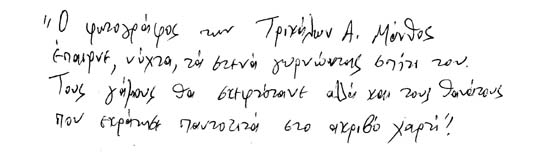 "Ο φωτογράφος των Τρικάλων Α. Μάνθος
έπαιρνε, νύχτα, τα στενά γυρνώντας σπίτι του.
Τους γάμους θα σκεφτότανε αλλά και τους θανάτους
που εκράτησε παντοτινά στο ακριβό χαρτί"!